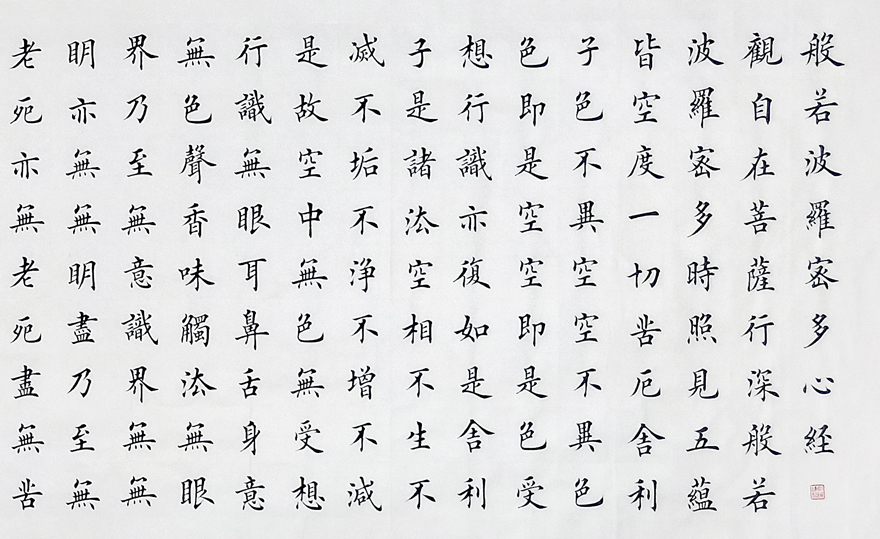 般若波羅密多心経
觀自在菩薩行深般若
波羅密多時照見五蘊
皆空度一切苦厄舍利
子色不異空空不異色
色即是空空即是色受
想行識亦復如是舍利
子是諸法空相不生不
滅不垢不淨不增不減
是故空中無色無受想
行識無眼耳鼻舌身意
無色聲香味觸法無眼
界乃至無意識界無無
明亦無無明盡乃至無
老死亦無老死盡無苦